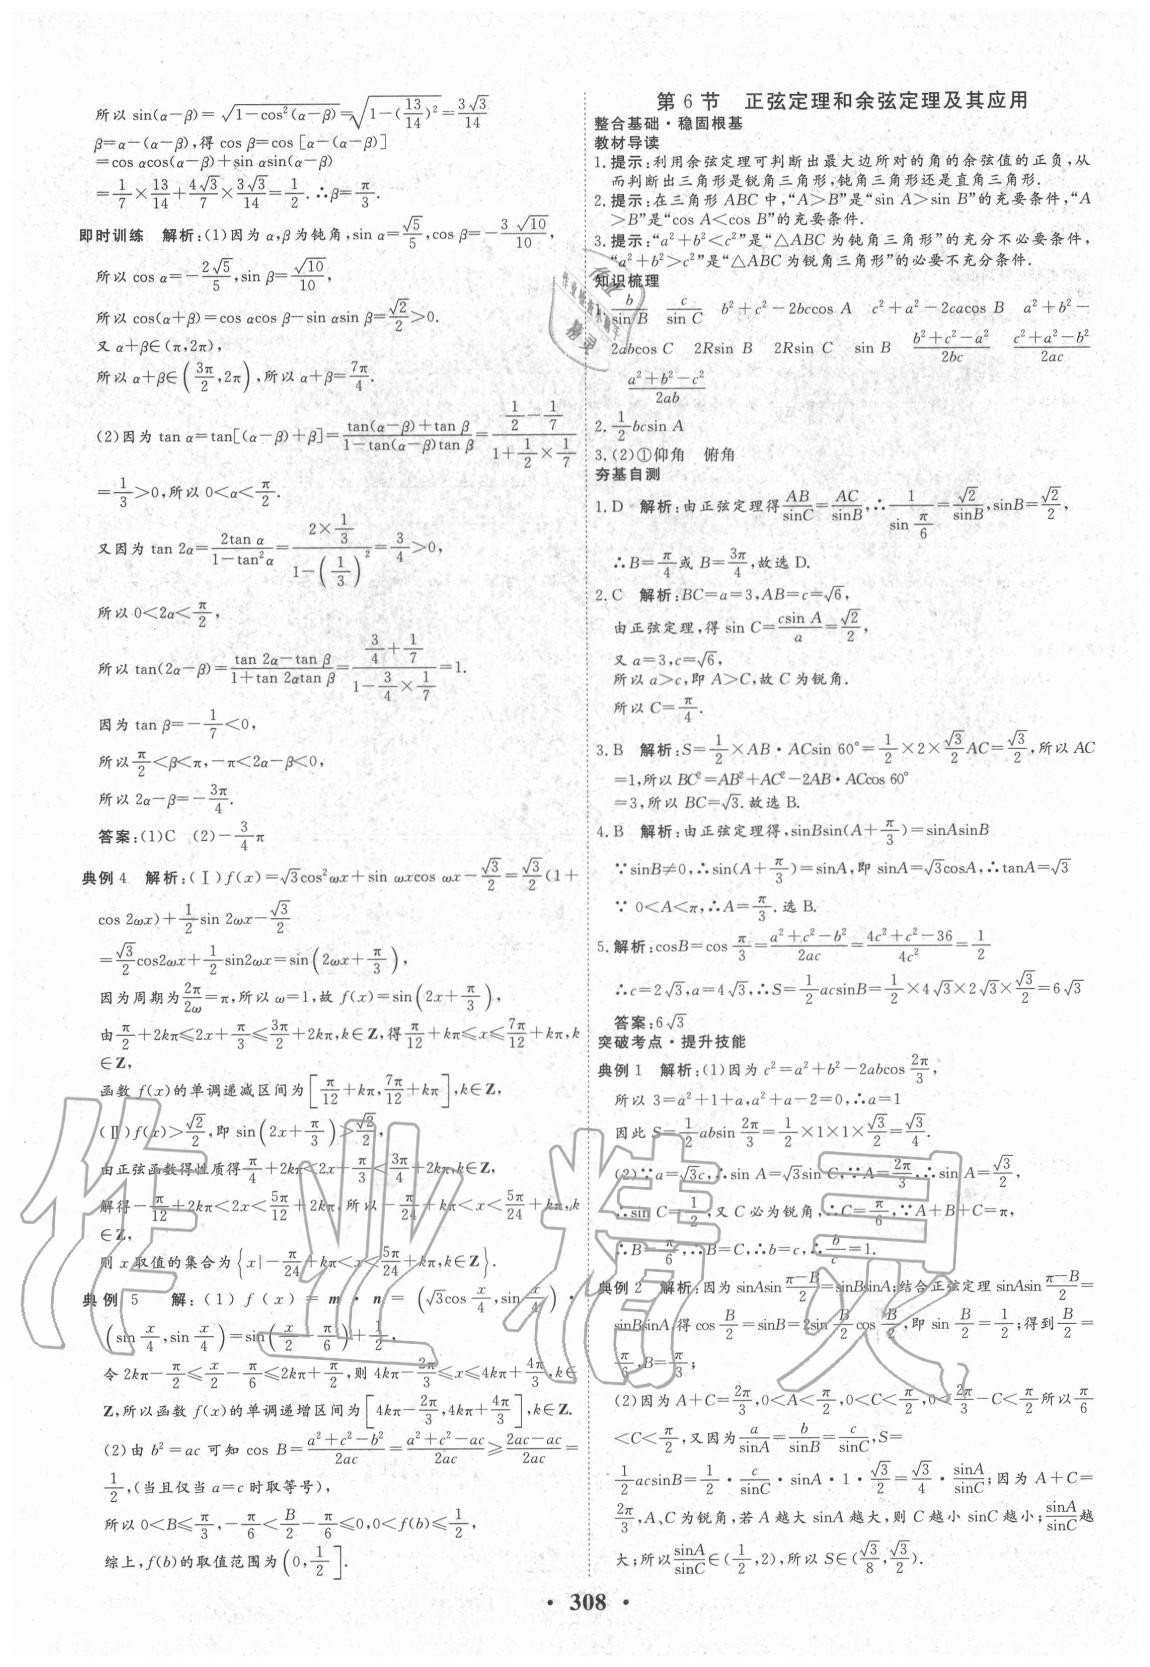 所以 sin(α－β)＝√(1－cos²(α－β))＝√(1－(13/14)²)＝3√3/14
β＝α－(α－β),得 cos β＝cos [α－(α－β)]
＝cos αcos(α－β)＋sin αsin(α－β)
＝1/7×13/14＋4√3/7×3√3/14＝1/2.∴β＝π/3.
即时训练 解析:(1)因为 α,β为钝角,sin α＝√5/5,cos β＝－3√10/10,
所以 cos α＝－2√5/5,sin β＝√10/10,
所以 cos(α＋β)＝cos αcos β－sin αsin β＝√2/2>0.
又 α＋β∈(π,2π),
所以 α＋β∈(3π/2,2π),所以 α＋β＝7π/4.
(2)因为 tan α＝tan[(α－β)＋β]＝(tan(α－β)＋tan β)/(1－tan(α－β)tan β)＝(1/2－1/7)/(1＋1/2×1/7)
＝1/3>0,所以 0<α<π/2.
又因为 tan 2α＝2tan α/(1－tan²α)＝(2×1/3)/(1－(1/3)²)＝3/4>0,
所以 0<2α<π/2,
所以 tan(2α－β)＝(tan 2α－tan β)/(1＋tan 2αtan β)＝(3/4＋1/7)/(1－3/4×1/7)＝1.
因为 tan β＝－1/7<0,
所以 π/2<β<π,－π<2α－β<0,
所以 2α－β＝－3π/4.
答案:(1)C (2)－3/4π
典例 4 解析:(Ⅰ)f(x)＝√3cos²ωx＋sin ωxcos ωx－√3/2＝√3/2(1＋
cos 2ωx)＋1/2sin 2ωx－√3/2
＝√3/2cos2ωx＋1/2sin2ωx＝sin(2ωx＋π/3),
因为周期为2π/2ω＝π,所以 ω＝1,故 f(x)＝sin(2x＋π/3),
由π/2＋2kπ≤2x＋π/3≤3π/2＋2kπ,k∈Z,得π/12＋kπ≤x≤7π/12＋kπ,k
∈Z,
函数 f(x)的单调递减区间为[π/12＋kπ,7π/12＋kπ],k∈Z,
(Ⅱ)f(x)>√2/2,即 sin(2x＋π/3)>√2/2,
由正弦函数得性质得π/4＋2kπ<2x＋π/3<3π/4＋2kπ,k∈Z,
解得－π/12＋2kπ<2x<5π/12＋2kπ,所以－π/24＋kπ<x<5π/24＋kπ,k
∈Z,
则 x 取值的集合为{x|－π/24＋kπ<x<5π/24＋kπ,k∈Z}.
典例 5 解:(1)f(x)＝m·n＝(√3cos x/4,sin x/4)·
(sin x/4,sin x/4)＝sin(x/2－π/6)＋1/2,
令 2kπ－π/2≤x/2－π/6≤2kπ＋π/2,则 4kπ－2π/3≤x≤4kπ＋4π/3,k∈
Z,所以函数 f(x)的单调递增区间为[4kπ－2π/3,4kπ＋4π/3],k∈Z.
(2)由 b²＝ac 可知 cos B＝(a²＋c²－b²)/2ac＝(a²＋c²－ac)/2ac≥(2ac－ac)/2ac＝
1/2,(当且仅当 a＝c 时取等号),
所以 0<B≤π/3,－π/6<B/2－π/6≤0,0<f(b)≤1/2,
综上,f(b)的取值范围为(0,1/2].
第 6 节 正弦定理和余弦定理及其应用
整合基础·稳固根基
教材导读
1.提示:利用余弦定理可判断出最大边所对的角的余弦值的正负,从
而判断出三角形是锐角三角形,钝角三角形还是直角三角形.
2.提示:在三角形 ABC 中,“A>B”是“sin A>sin B”的充要条件,“A
>B”是“cos A<cos B”的充要条件.
3.提示:“a²＋b²<c²”是“△ABC 为钝角三角形”的充分不必要条件,
“a²＋b²>c²”是“△ABC 为锐角三角形”的必要不充分条件.
知识梳理
b/sin B c/sin C b²＋c²－2bccos A c²＋a²－2cacos B a²＋b²－
2abcos C 2Rsin B 2Rsin C sin B (b²＋c²－a²)/2bc (c²＋a²－b²)/2ac
(a²＋b²－c²)/2ab
2.1/2bcsin A
3.(2)①仰角 俯角
夯基自测
1.D 解析:由正弦定理得AB/sinC＝AC/sinB,∴1/sin π/6＝√2/sinB,sinB＝√2/2,
∴B＝π/4或 B＝3π/4,故选 D.
2.C 解析:BC＝a＝3,AB＝c＝√6,
由正弦定理,得 sin C＝csin A/a＝√2/2,
又 a＝3,c＝√6,
所以 a>c,即 A>C,故 C 为锐角.
所以 C＝π/4.
3.B 解析:S＝1/2×AB·ACsin 60°＝1/2×2×√3/2AC＝√3/2,所以 AC
＝1,所以 BC²＝AB²＋AC²－2AB·ACcos 60°
＝3,所以 BC＝√3.故选 B.
4.B 解析:由正弦定理得,sinBsin(A＋π/3)＝sinAsinB
∵sinB≠0,∴sin(A＋π/3)＝sinA,即 sinA＝√3cosA,∴tanA＝√3
∵0<A<π,∴A＝π/3.选 B.
5.解析:cosB＝cos π/3＝(a²＋c²－b²)/2ac＝(4c²＋c²－36)/4c²＝1/2
∴c＝2√3,a＝4√3,∴S＝1/2acsinB＝1/2×4√3×2√3×√3/2＝6√3
答案:6√3
突破考点·提升技能
典例 1 解析:(1)因为 c²＝a²＋b²－2abcos 2π/3,
所以 3＝a²＋1＋a,a²＋a－2＝0,∴a＝1
因此 S＝1/2absin 2π/3＝1/2×1×1×√3/2＝√3/4.
(2)∵a＝√3c,∴sin A＝√3sin C,∵A＝2π/3,∴sin A＝√3/2,
∴sin C＝1/2,又 C 必为锐角,∴C＝π/6,∵A＋B＋C＝π,
∴B＝π/6,∴B＝C,∴b＝c,∴b/c＝1.
典例 2 解析:因为 sinAsin (π－B)/2＝sinBsinA;结合正弦定理 sinAsin (π－B)/2＝
sinBsinA,得 cos B/2＝sinB＝2sin B/2cos B/2,即 sin B/2＝1/2;得到B/2＝
π/6,B＝π/3;
(2)因为 A＋C＝2π/3,0<A<π/2,0<C<π/2,0<2π/3－C<π/2所以π/6
<C<π/2,又因为a/sinA＝b/sinB＝c/sinC,S＝
1/2acsinB＝1/2·c/sinC·sinA·1·√3/2＝√3/4·sinA/sinC;因为 A＋C＝
2π/3,A、C 为锐角,若 A 越大 sinA 越大,则 C 越小 sinC 越小;sinA/sinC越
大;所以sinA/sinC∈(1/2,2),所以 S∈(√3/8,√3/2).
·308·
作业精灵